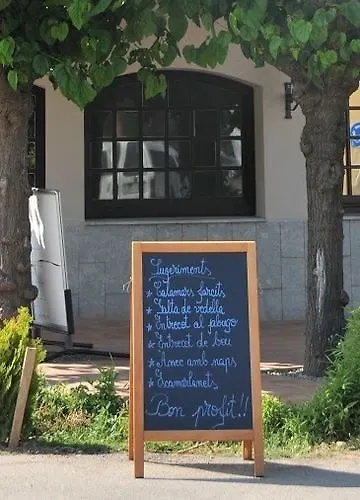 Sugeriments
* Calamars farcits
* Falta de vedella
* Entrecot al fabugo
* Entrecot de bou
* Ànec amb naps
* Escamarlanets
Bon profit!!